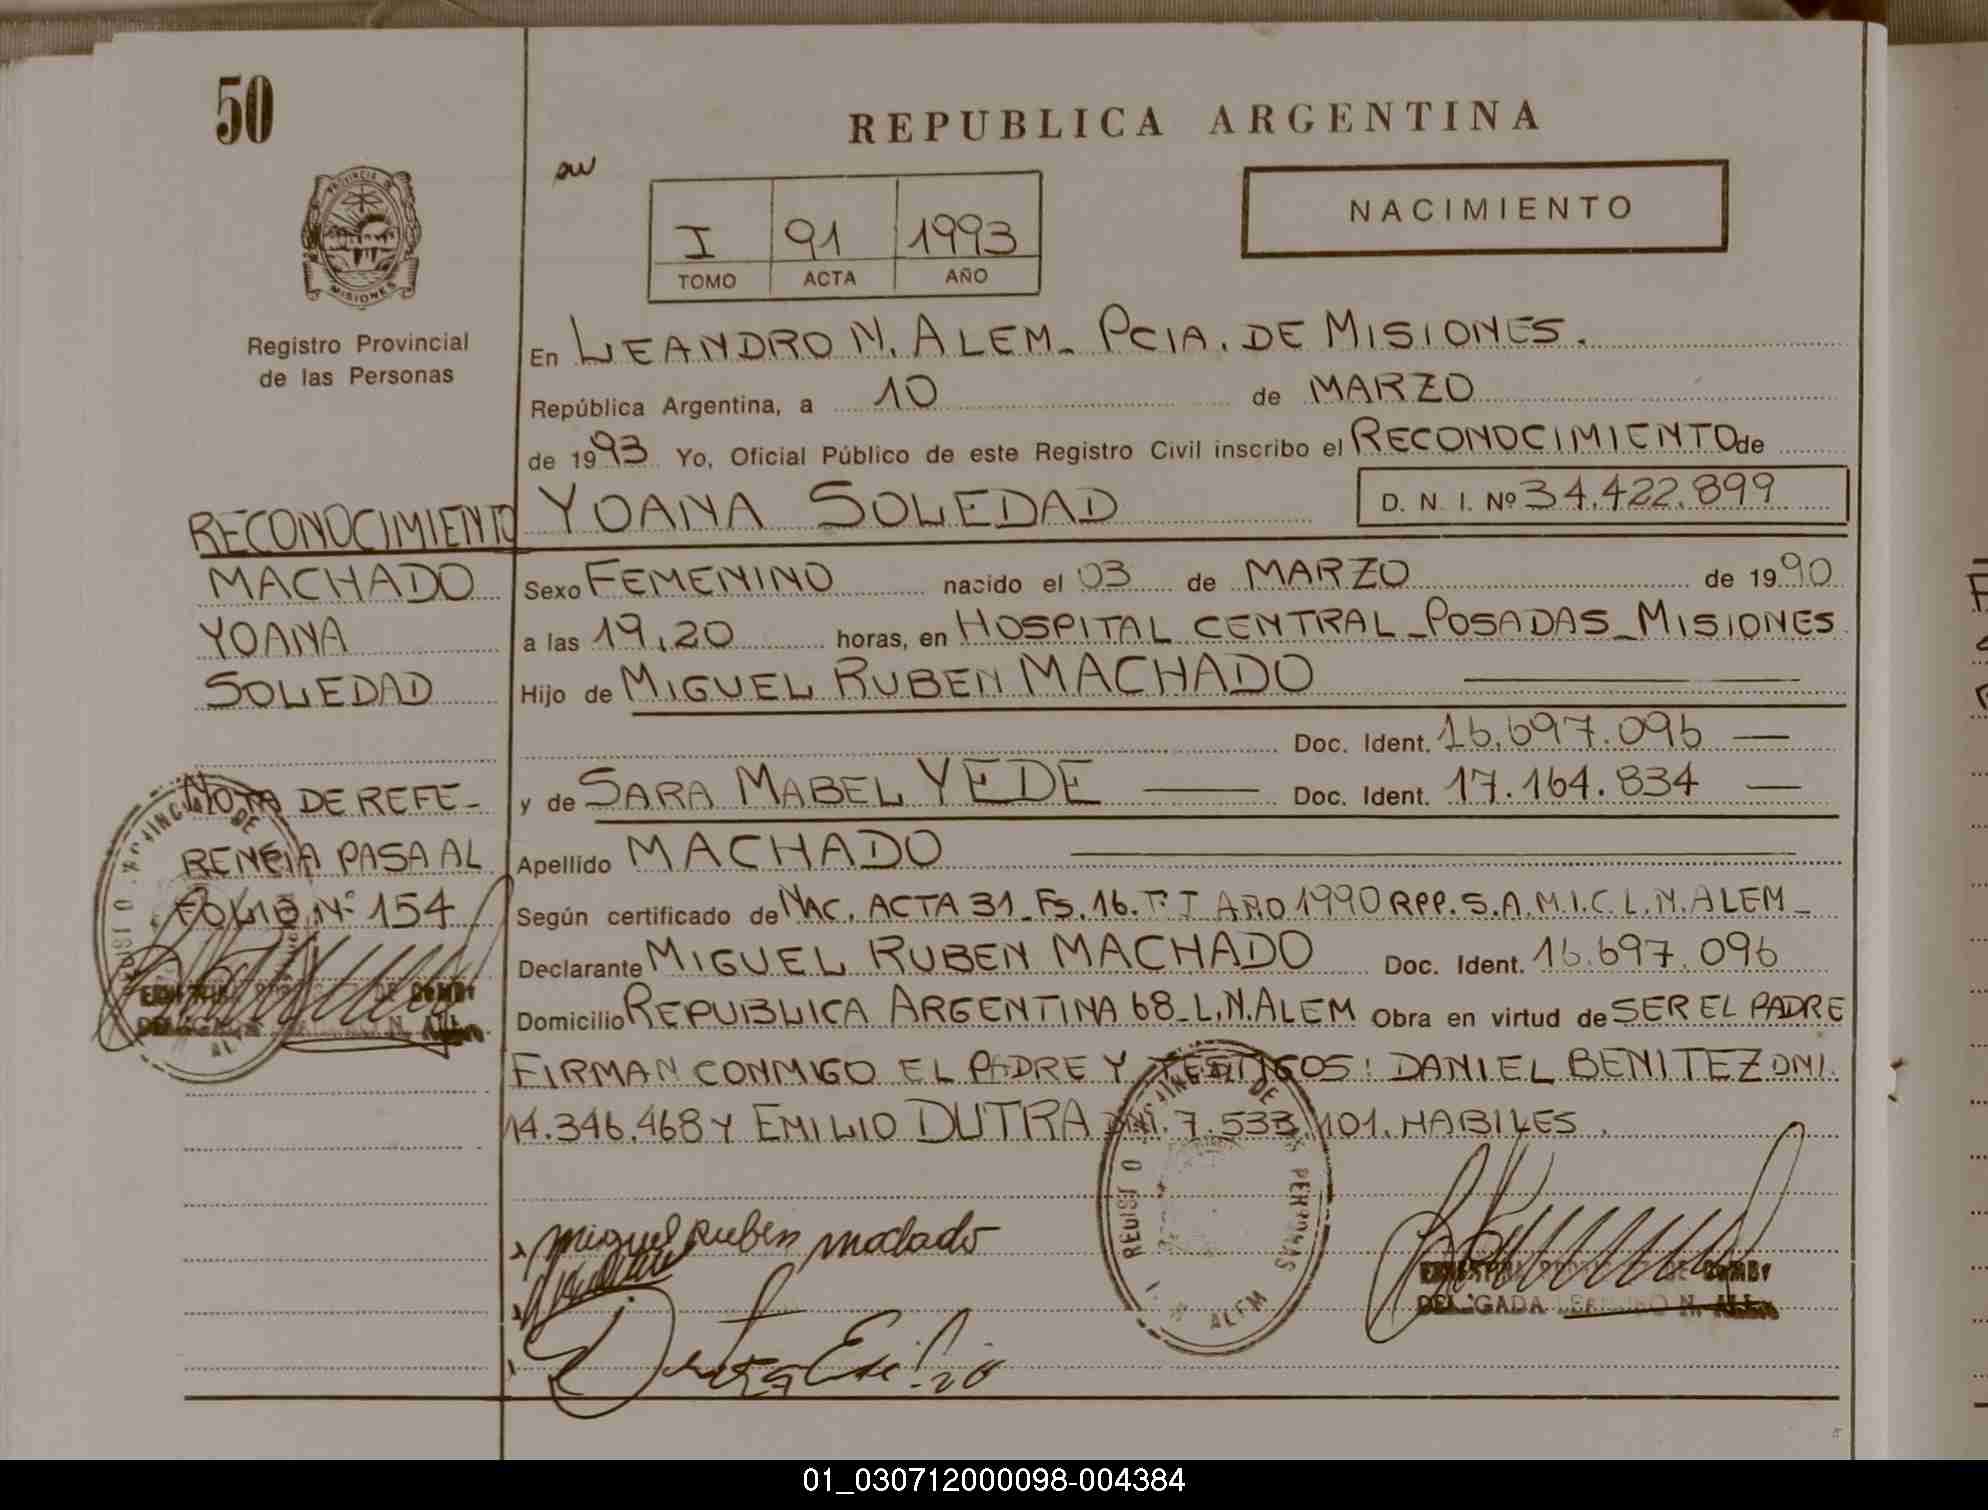 50
REPUBLICA ARGENTINA
NACIMIENTO
I 91 1993
TOMO ACTA AÑO
PROVINCIA DE
MISIONES
Registro Provincial
de las Personas
En LEANDRO N. ALEM_ PCIA. DE MISIONES.
República Argentina, a 10 de MARZO
de 1993 Yo, Oficial Público de este Registro Civil inscribo el RECONOCIMIENTO de
YOANA SOLEDAD D. N. I. Nº 34.422.899
RECONOCIMIENTO
MACHADO
YOANA
SOLEDAD
Sexo FEMENINO nacido el 03 de MARZO de 1990
a las 19,20 horas, en HOSPITAL CENTRAL_POSADAS_MISIONES
Hijo de MIGUEL RUBEN MACHADO
Doc. Ident. 16.697.096
y de SARA MABEL YEDE Doc. Ident. 17.164.834
Apellido MACHADO
Según certificado de NAC. ACTA 31_Fs.16.T:I AÑO 1990 RPP.S.A.M.I.C.L.N.ALEM_
Declarante MIGUEL RUBEN MACHADO Doc. Ident. 16.697.096
Domicilio REPUBLICA ARGENTINA 68_L.N.ALEM Obra en virtud de SER EL PADRE
FIRMAN CONMIGO EL PADRE Y TESTIGOS: DANIEL BENITEZ DNI.
14.346.468 Y EMILIO DUTRA DNI. 7.533.101. HABILES.
NOTA DE REFE-
RENCIA PASA AL
FOLIO Nº 154
Miguel Ruben Machado
Dutra Emilio
DE
PERSONAS
ALEM
DELEGADA LEANDRO N. ALEM
01_030712000098-004384